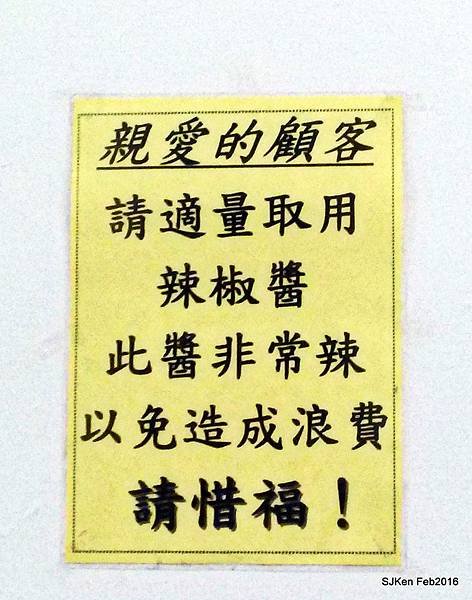 親愛的顧客
請適量取用
辣椒醬
此醬非常辣
以免造成浪費
請惜福！
SJKen Feb2016